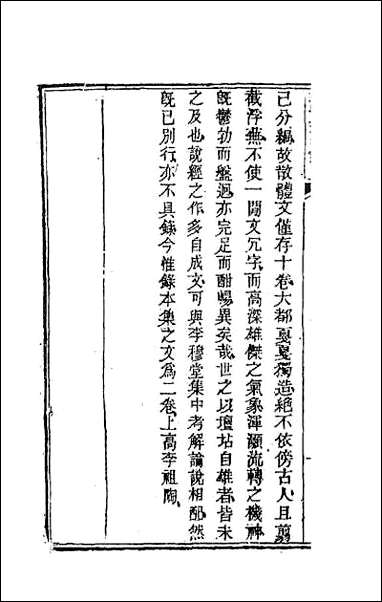 已分編故散體文僅存十卷大都戛戛獨造絶不依傍古人且剪
截浮蕪不使一閒文冗字而高深雄傑之氣象渾灝流轉之機神
旣鬱勃而盤迴亦完足而酣暢異矣哉世之以壇坫自雄者皆未
之及也說經之作多自成文可與李穆堂集中考解論說相配然
旣已別行亦不具錄今惟錄本集之文爲二卷上高李祖陶